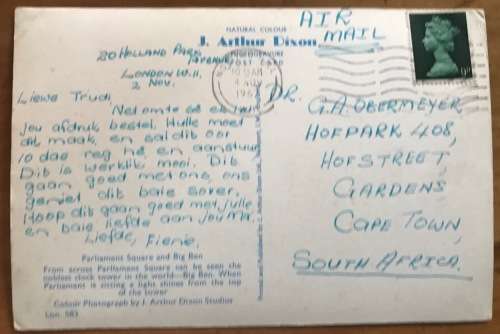 NATURAL COLOUR
J. Arthur Dixon
PHOTOGRAVURE
POST CARD
AIR
MAIL
20 HOLLAND PARK
AVENUE
LONDON W.11,
2 NOV.
Liewe Trudi,
Net om te sê ek het
jou afdruk bestel. Hulle moet
dit maak, en sal dit oor
10 dae reg hê en aanstuur.
Dit is werklik mooi. Dit
gaan goed met ons, ons
geniet dit baie sover.
Hoop dit gaan goed met julle
en baie liefde aan jou Ma.
Liefde,
DR. G.A. OBERMEYER,
HOFPARK 408,
HOFSTREET,
GARDENS
CAPE TOWN,
SOUTH AFRICA.
Parliament Square and Big Ben
From across Parliament Square can be seen the
noblest clock tower in the world—Big Ben. When
Parliament is sitting a light shines from the top
of the tower
Colour Photograph by J. Arthur Dixon Studios
Lon. 583